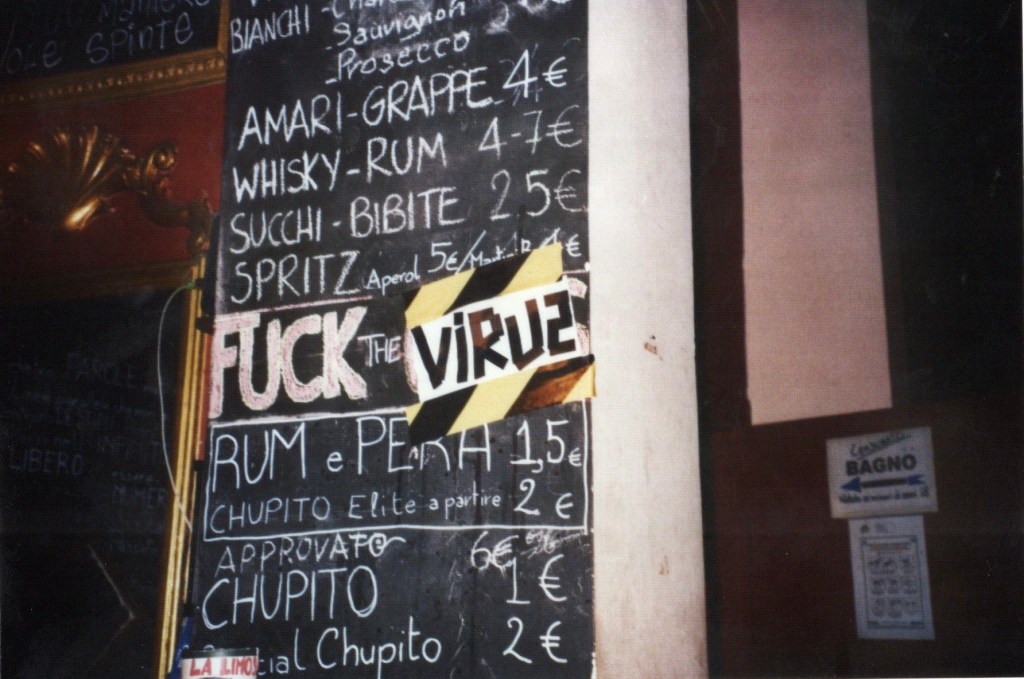 OLE SPINTE
BIANCHI
-Sauvignon
-Prosecco
AMARI-GRAPPE 4€
WHISKY-RUM 4-7€
SUCCHI-BIBITE 2,5€
SPRITZ Aperol 5€/Martini 4€
FUCK THE VIRUZ
RUM e PERA 1,5€
CHUPITO Elite a partire 2€
APPROVATO 6€
CHUPITO 1€
Special Chupito 2€
LA LIMO
LIBERO
BAGNO